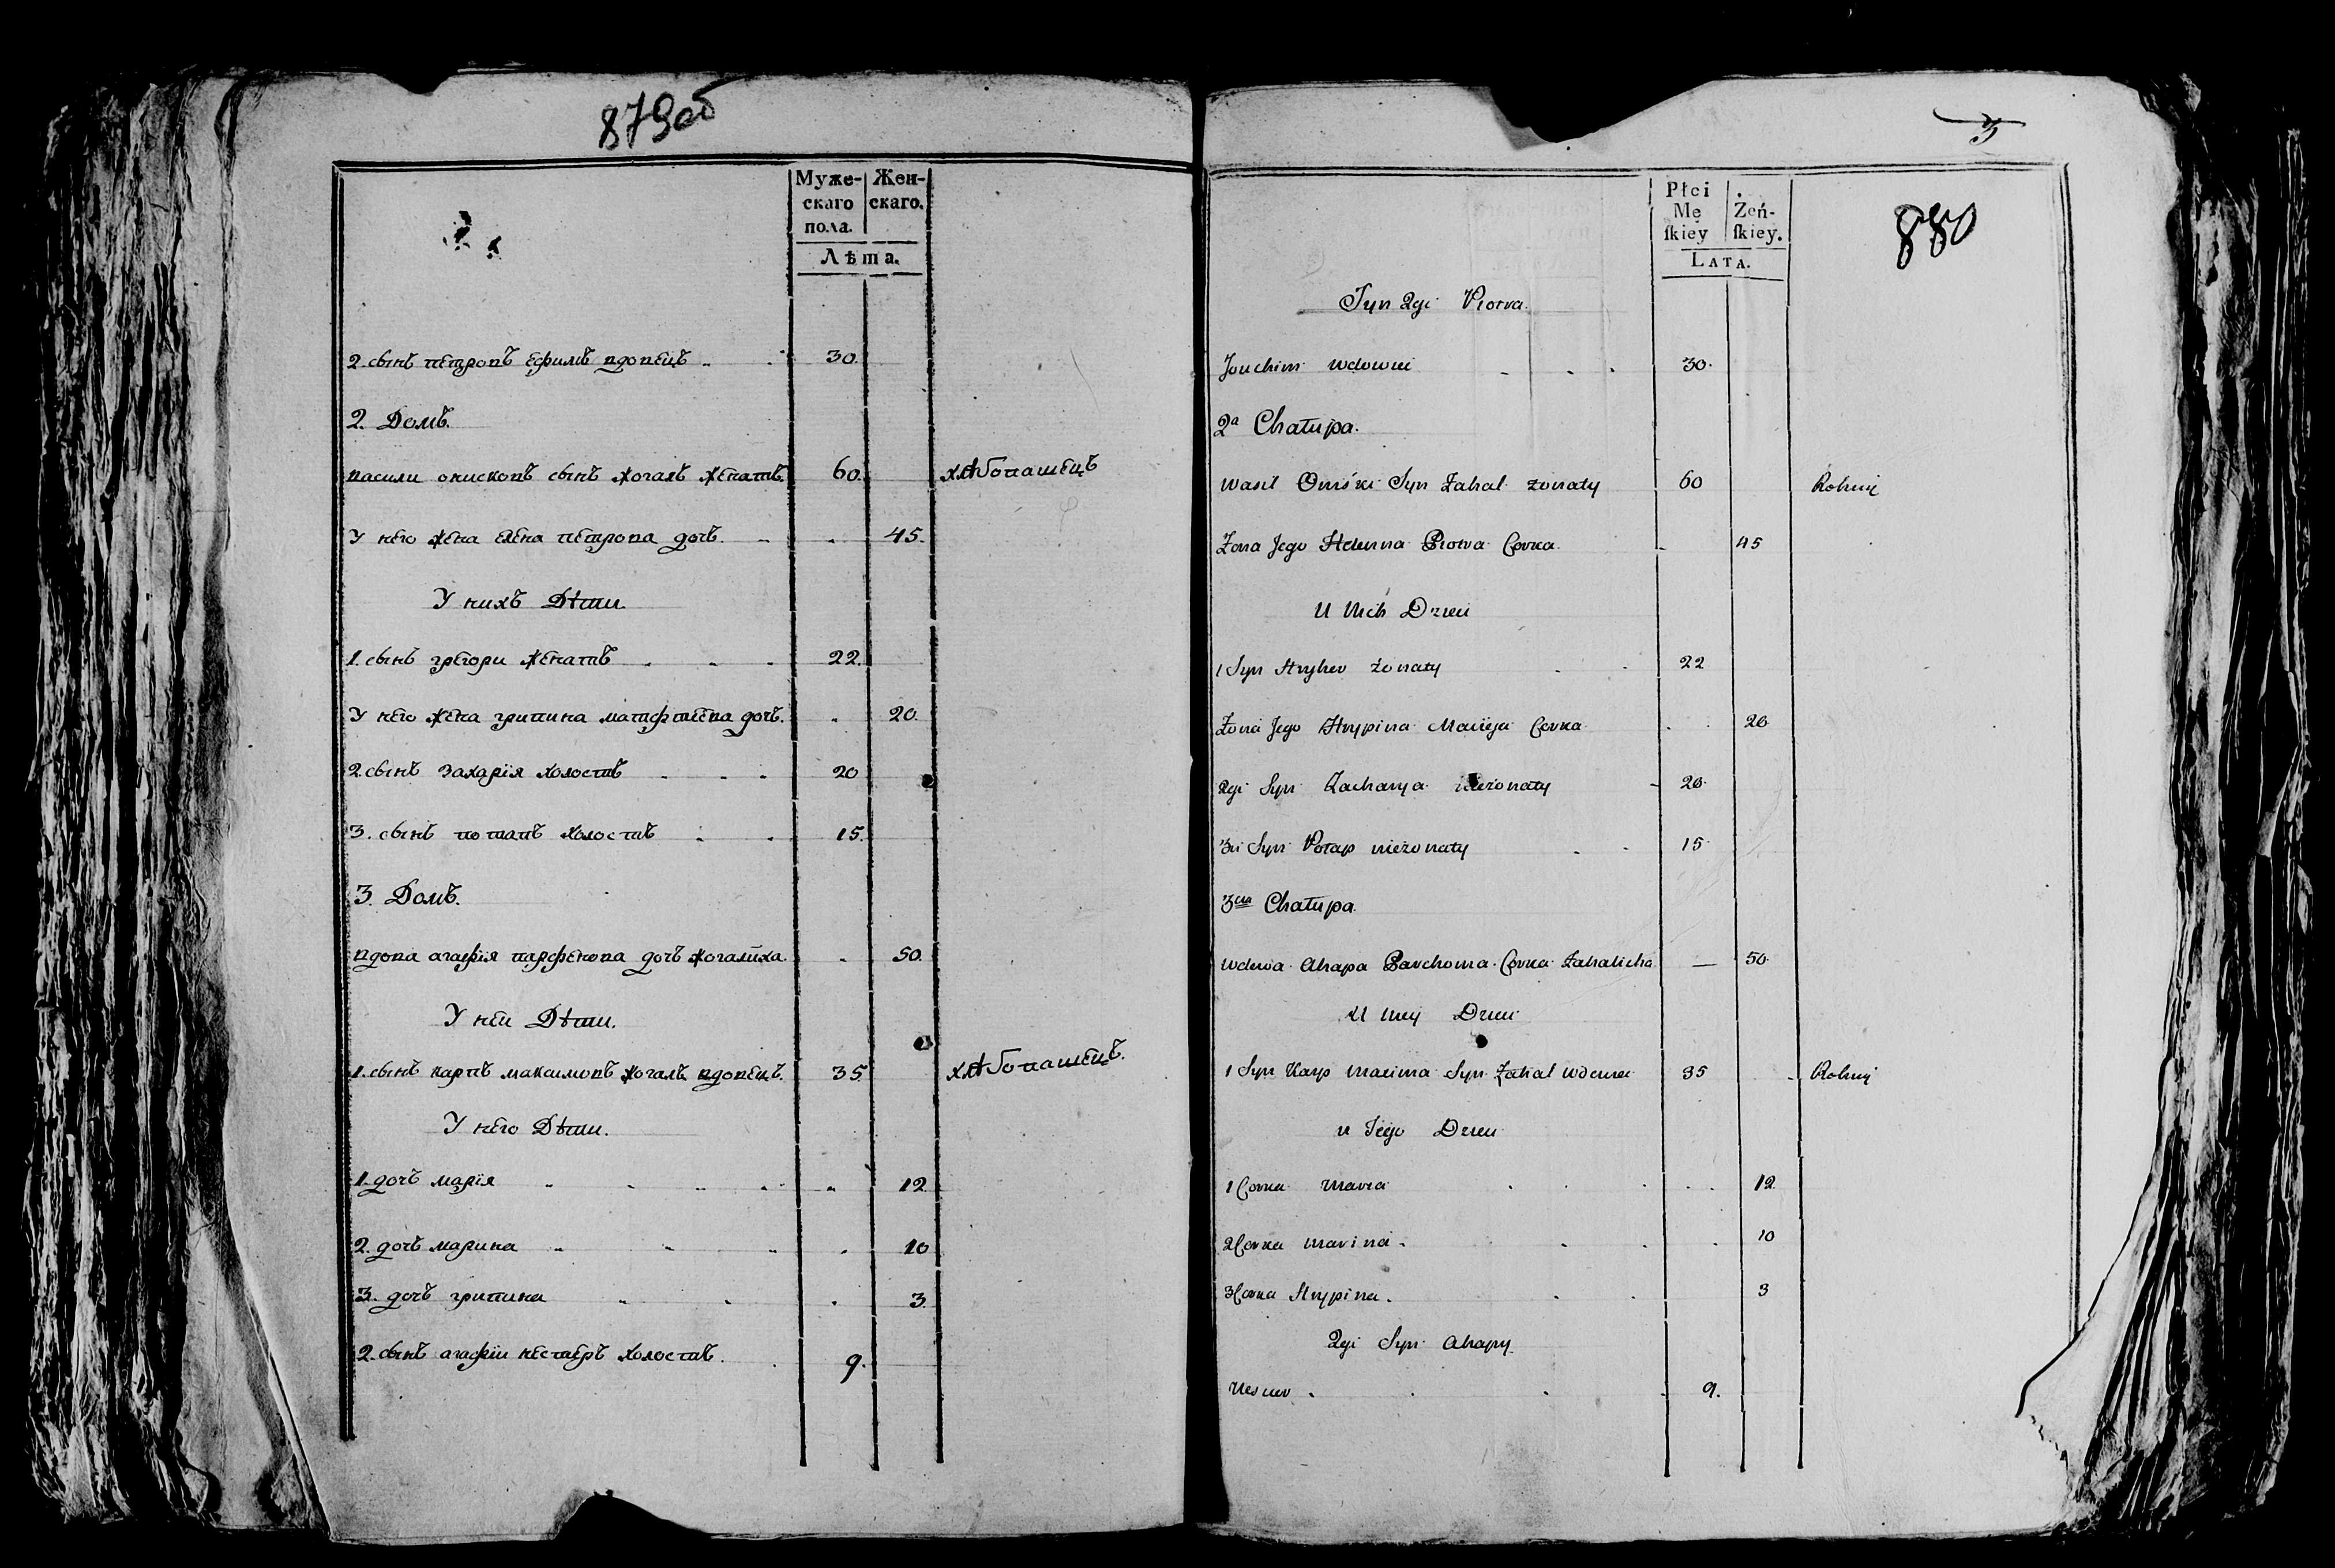 879об
Муже-
скаго
пола.
Жен-
скаго.
Лѣта.
2. сынъ петровъ ефимъ вдовецъ 30.
2. Домъ.
василй онисковъ сынъ жогалъ женатъ. 60. хлѣбопашецъ
У него жена елена петрова дочъ 45.
У нихъ Дѣти.
1. сынъ грегори женатъ 22.
У него жена грипина матфѣева дочъ. 20.
2. сынъ Захарїя холостъ 20
3. сынъ потапъ холостъ 15.
3. Домъ.
вдова агафїя парфенова дочъ жогалиха. 50.
У неи Дѣти.
1. сынъ карпъ максимовъ жогалъ вдовецъ. 35. хлѣбопашецъ.
У него Дѣти.
1. дочъ марїя 12.
2. дочъ марина 10
3. дочъ грипина 3.
2. сынъ агафїи нестеръ холостъ. 9.
3
880
Płci
Mę
ſkiey
Zeń-
ſkiey.
LATA.
Syn 2gi Piotra.
Jouchim wdowiec 30.
2a Chałupa.
Wasil Oniśki Syn Żahal żonaty 60 Rolniý
Żona Jego Helenna Piotra Corka. 45
U Nich Dzieci
1 Syn Hryhor żonaty 22
Żona Jego Hrypina Macieja Corka 20
2gi Syn Zacharya nieżonaty 20.
3ci Syn Potap nieżonaty 15.
3cia Chałupa.
Wdowa Ahapa Parchoma Corka Żahalicha — 50.
U Niey Dzieci
1 Syn Karp Maxima Syn Żahal Wdowiec 35 Rolniý
u Jego Dzieci
1 Corka Maria 12
2 Corka Marina 10
3 Corka Hrypina. 3
2gi Syn Ahapy
Nester 9.